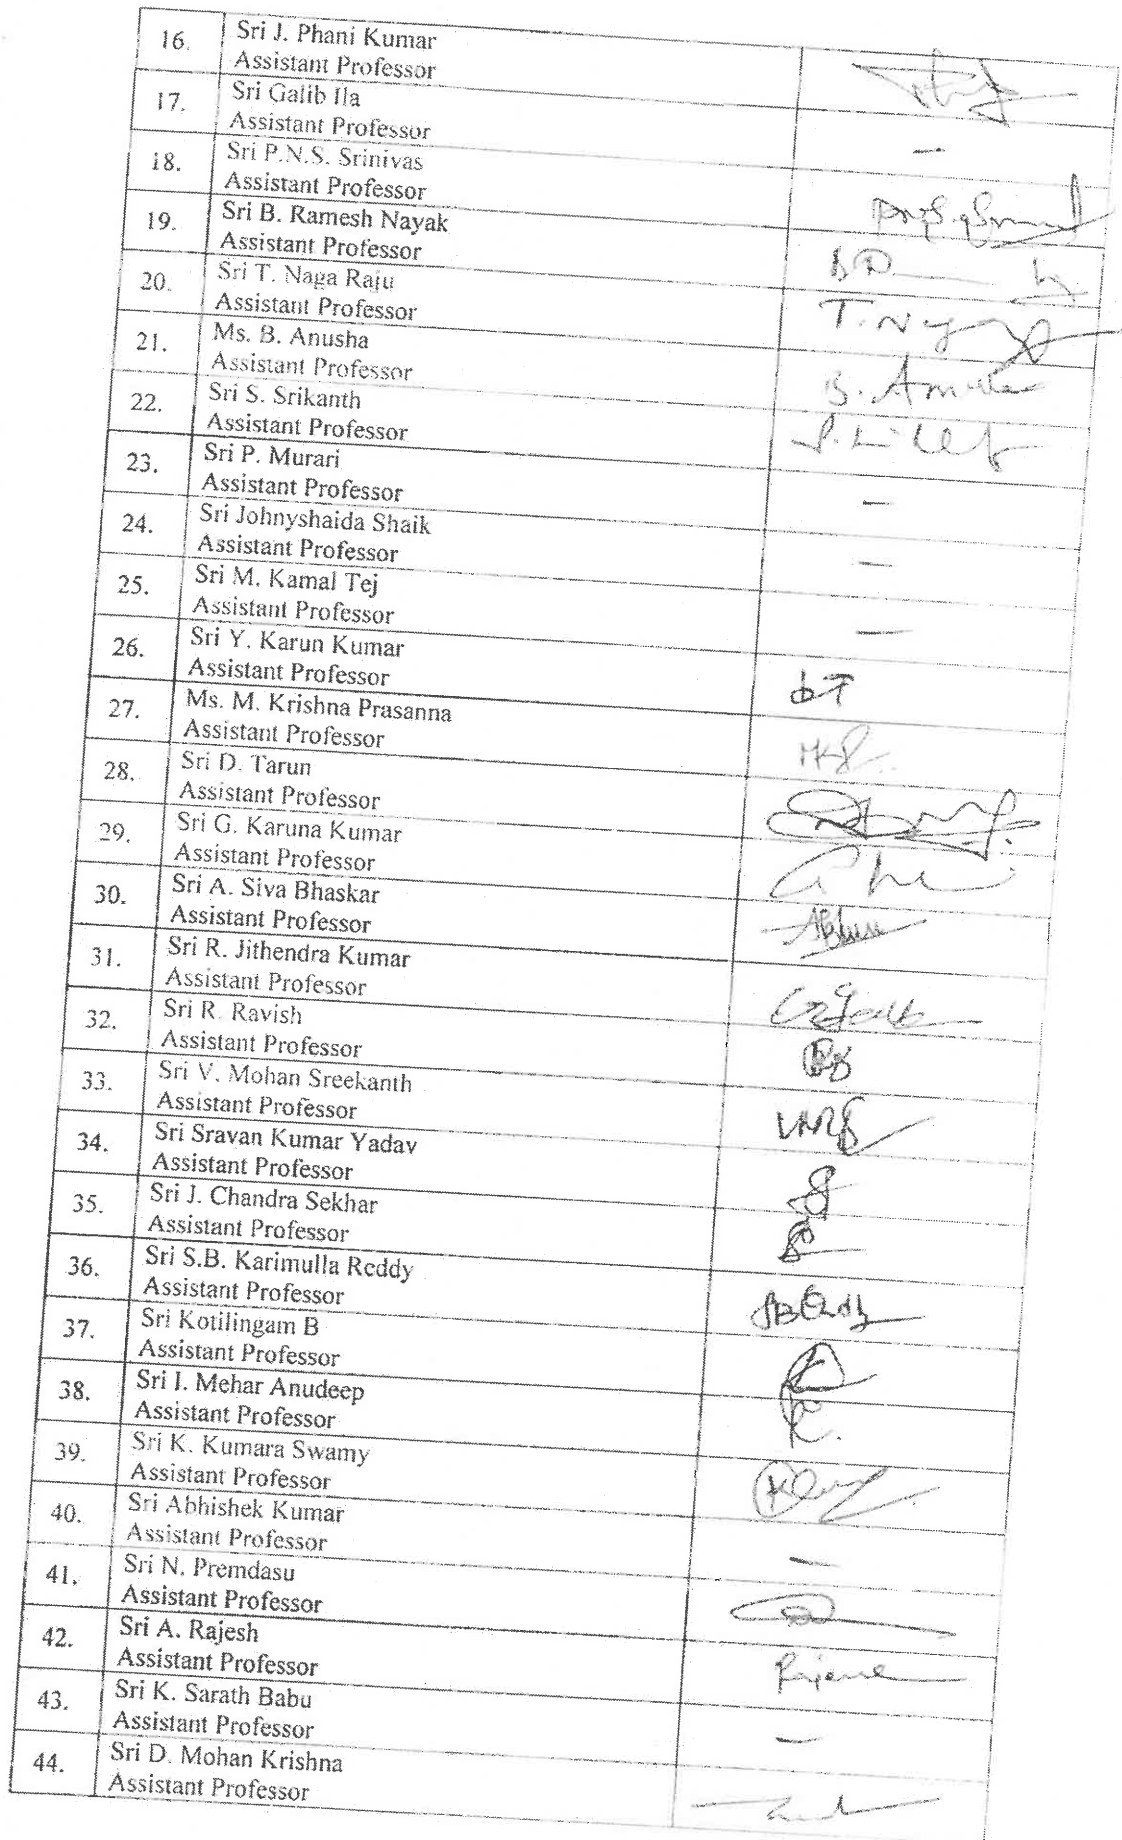 16. Sri J. Phani Kumar
Assistant Professor
17. Sri Galib Ila
Assistant Professor
–
18. Sri P.N.S. Srinivas
Assistant Professor
19. Sri B. Ramesh Nayak
Assistant Professor
20. Sri T. Naga Raju
Assistant Professor
21. Ms. B. Anusha
Assistant Professor
22. Sri S. Srikanth
Assistant Professor
23. Sri P. Murari
Assistant Professor
–
24. Sri Johnyshaida Shaik
Assistant Professor
–
25. Sri M. Kamal Tej
Assistant Professor
–
26. Sri Y. Karun Kumar
Assistant Professor
27. Ms. M. Krishna Prasanna
Assistant Professor
28. Sri D. Tarun
Assistant Professor
29. Sri G. Karuna Kumar
Assistant Professor
30. Sri A. Siva Bhaskar
Assistant Professor
31. Sri R. Jithendra Kumar
Assistant Professor
32. Sri R. Ravish
Assistant Professor
33. Sri V. Mohan Sreekanth
Assistant Professor
34. Sri Sravan Kumar Yadav
Assistant Professor
35. Sri J. Chandra Sekhar
Assistant Professor
36. Sri S.B. Karimulla Reddy
Assistant Professor
37. Sri Kotilingam B
Assistant Professor
38. Sri I. Mehar Anudeep
Assistant Professor
39. Sri K. Kumara Swamy
Assistant Professor
40. Sri Abhishek Kumar
Assistant Professor
–
41. Sri N. Premdasu
Assistant Professor
42. Sri A. Rajesh
Assistant Professor
43. Sri K. Sarath Babu
Assistant Professor
–
44. Sri D. Mohan Krishna
Assistant Professor